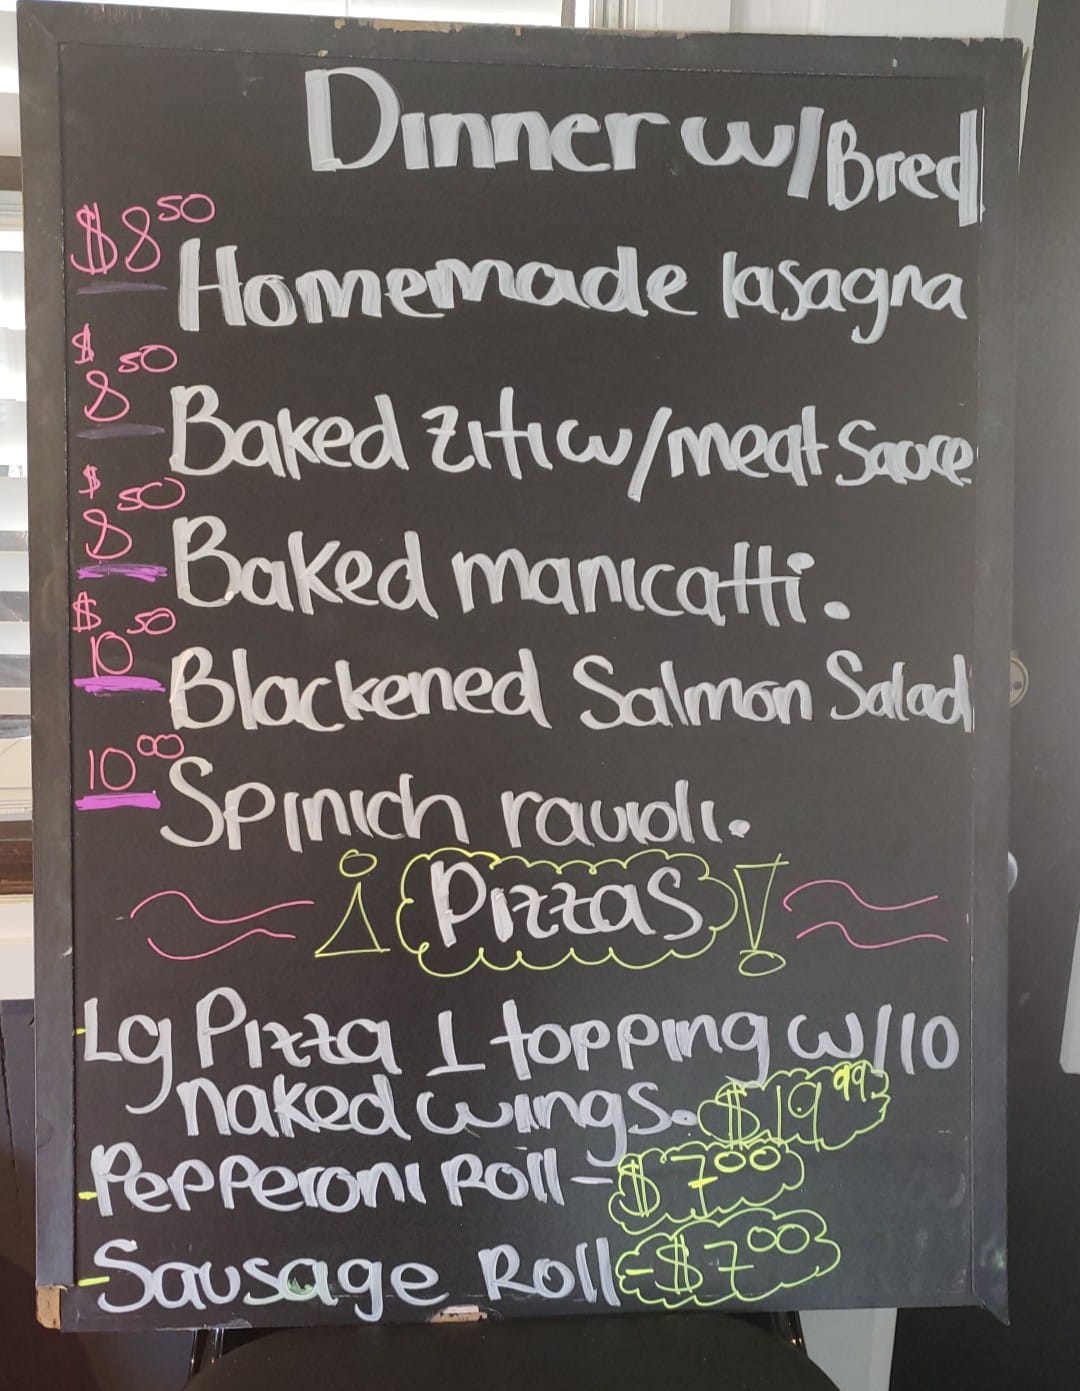 Dinner w/Bred
$8 50 Homemade lasagna
$8 50 Baked ziti w/meat Saoce
$8 50 Baked manicatti.
$10 50 Blackened Salmon Salad
10 00 Spinich ravioli.
¡ Pizzas !
-Lg Pizza 1 topping w/10
naked wings. $19 99
-Pepperoni Roll - $7 00
-Sausage Roll - $7 00